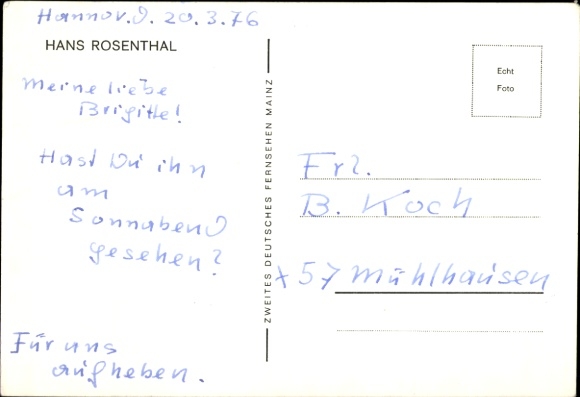 Hannov. d. 20.3.76
HANS ROSENTHAL
Meine liebe
Brigitte!
Hast Du ihn
am
Sonnabend
gesehen?
Für uns
aufheben.
ZWEITES DEUTSCHES FERNSEHEN MAINZ
Echt
Foto
Frl.
B. Koch
x 57 Mühlhausen